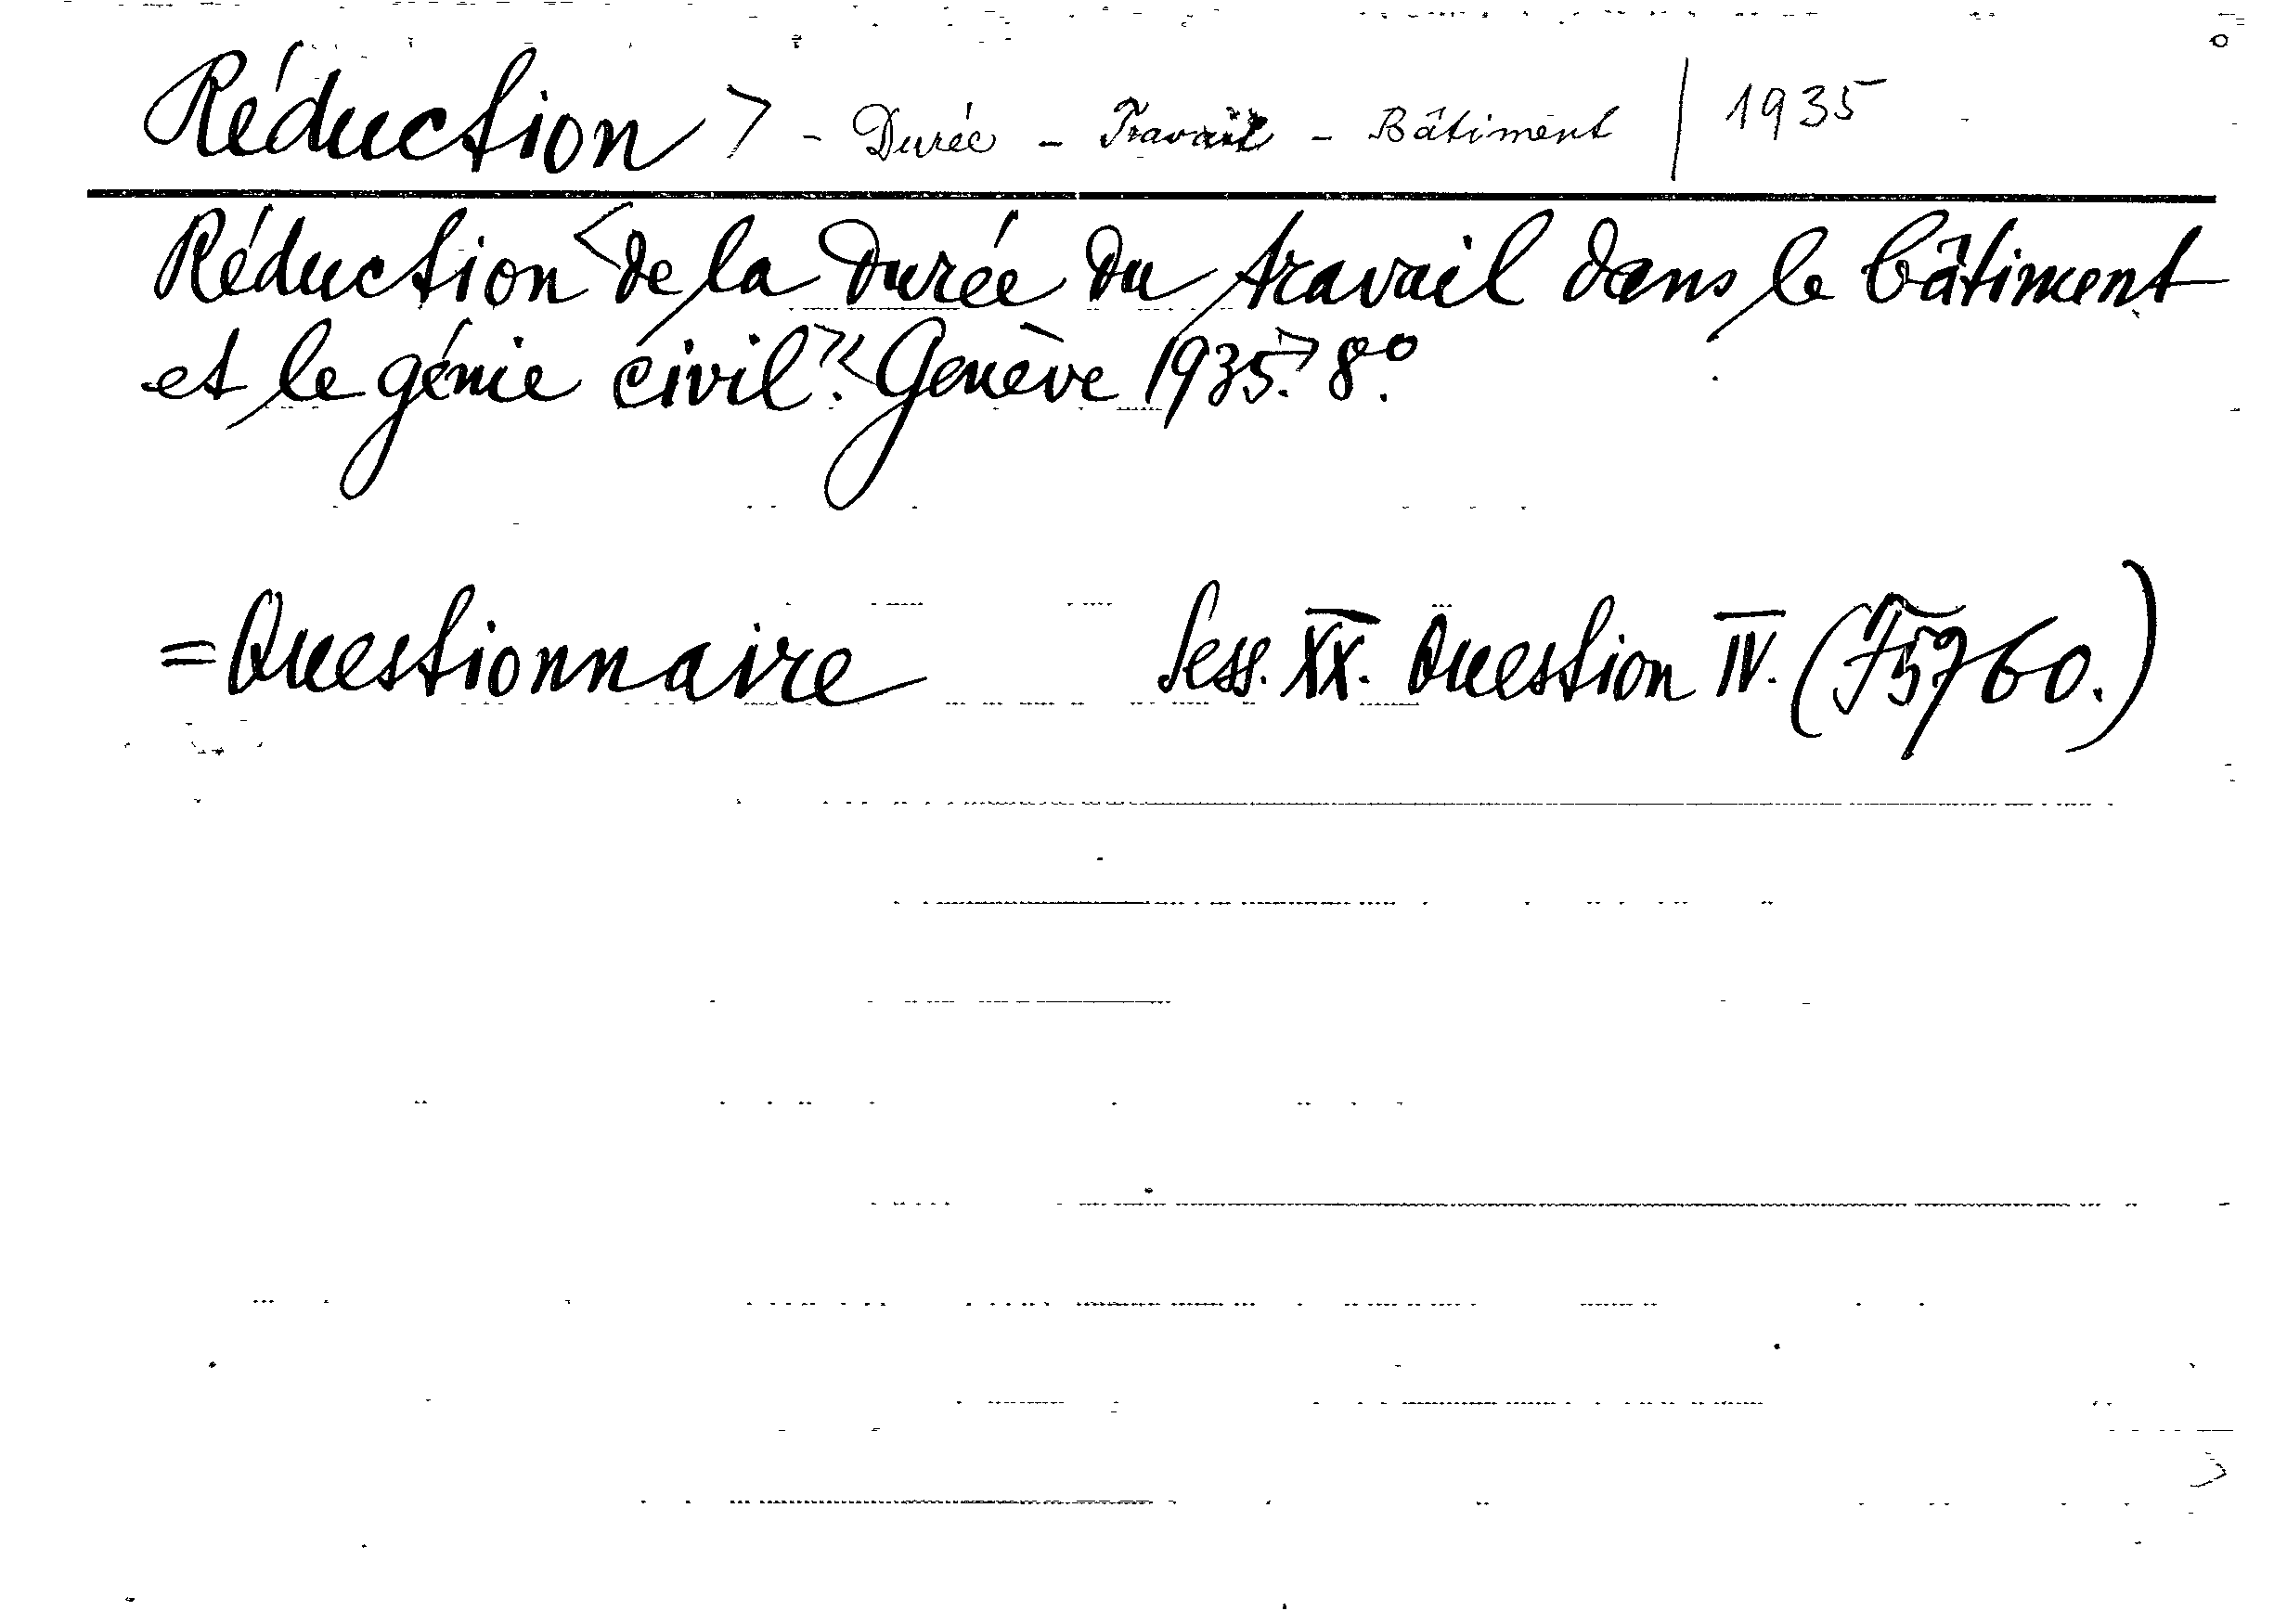 Réduction > - Durée - Travail - Bâtiment | 1935
Réduction <de la durée du travail dans le bâtiment
et le génie civil>. <Genève 1935.> 8°.
= Questionnaire Sess. XX. Question IV. (F5760.)